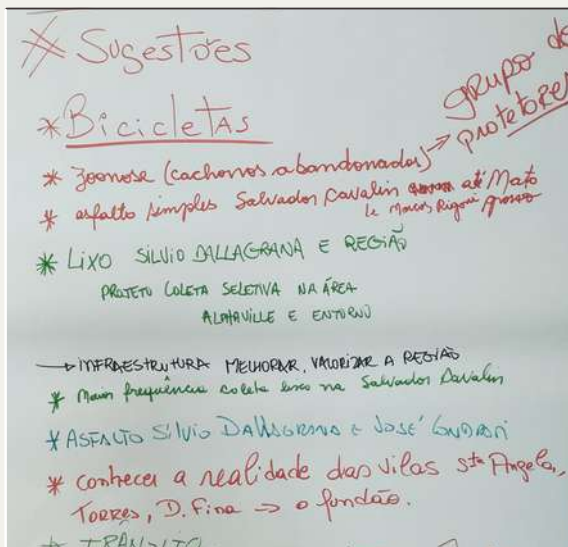 # Sugestões
* Bicicletas
* Zoonose (cachorros abandonados) → grupo de protetores
* asfalto simples Salvador Cavalin até Mato Grosso
(e Marcos Rigoni
* LIXO SILVIO DALLAGRANA E REGIÃO
PROJETO COLETA SELETIVA NA ÁREA
ALPHAVILLE E ENTORNO
→ INFRAESTRUTURA MELHORAR, VALORIZAR A REGIÃO
* Mais frequência coleta lixo na Salvador Cavalin
* ASFALTO SILVIO DALLAGRANA E JOSÉ
* conhecer a realidade das vilas Sta Angela,
TORRES, D. Fina → o fundão.
* TRÂNSITO